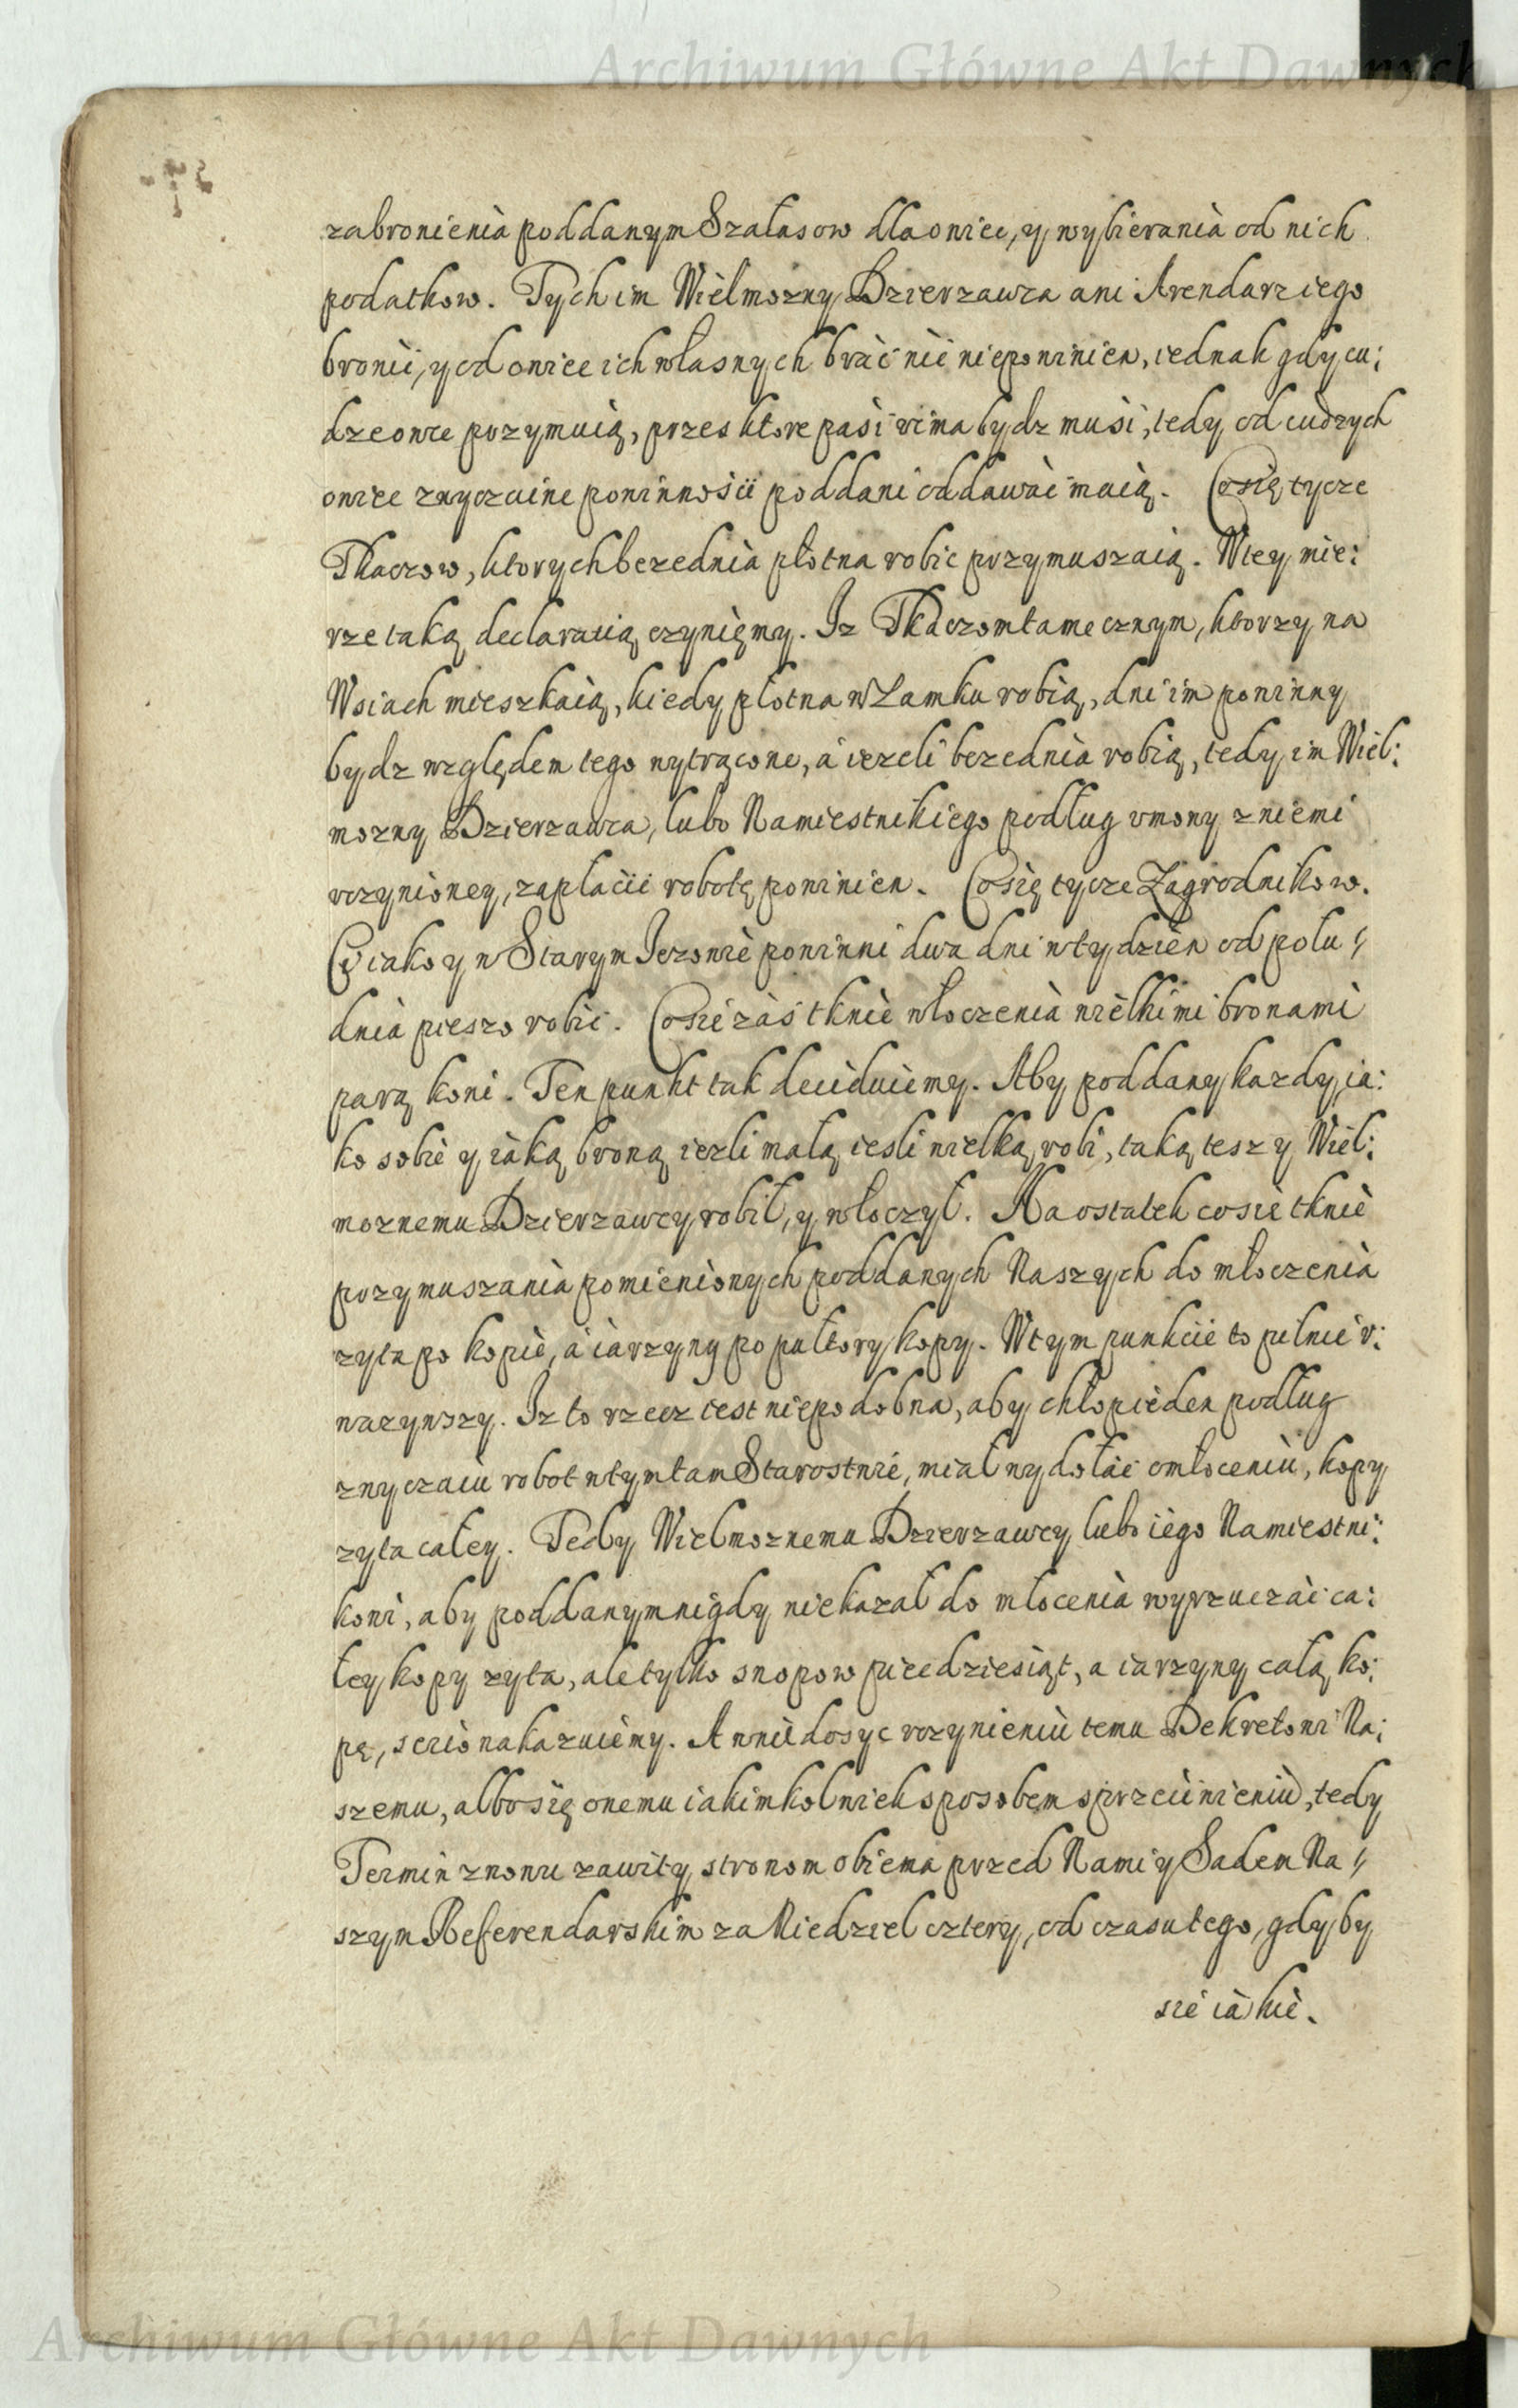 Archiwum Główne Akt Dawnych
zabronienia poddanym Szałasow dla owiec, y wybierania od nich
podatkow. Tych im Wielmozny Dzierzawca ani Arendarz iego
bronić, y od owiec ich własnych brać nic niepowinien, iednak gdy cu:
dze owce przymuią, przes ktore paśi vima bydz muśi, tedy od cudzych
owiec zwyczaine powinnośći poddani oddawać maią. Co się tycze
Tkaczow, ktorych bezednia płotna robic przymuszaią. W tey mie:
rze taką declaratią czyniemy. Iz Tkaczom tamecznym, ktorzy na
Wsiach mieszkaią, kiedy płotna w Zamku robią, dni im powinny
bydz względem tego wytrącone, a iezeli bezednia robią, tedy im Wiel:
mozny Dzierzawca, lubo Namiestnik iego podług vmowy z niemi
vczynioney, zapłaćić robotę powinien. Co się tycze Zagrodnikow.
Ci iako y w Starym Iezowie powinni dwa dni w tydzien od połu
dnia pieszo robić. Co sie zaś tknie włoczenia wielkimi bronami
parą koni. Ten punkt tak deciduiemy. Aby poddany kazdy ia:
ko sobie y iaką broną iezli małą iesli wielką robi, taką tesz y Wiel:
moznemu Dzierzawcy robił, y włoczył. Na ostatek co sie tknie
przymuszania pomienionych poddanych Naszych do młoczenia
zyta po kopie, a iarzyny po pułtory kopy. W tym punkcie to pilnie v:
wazywszy. Iz to rzecz iest niepodobna, aby chłop ieden podług
zwyczaiu robot w tym tam Starostwie, miał wydołać omłoceniu, kopy
zyta całey. Tedy Wielmoznemu Dzierzawcy lubo iego Namiestni:
kowi, aby poddanym nigdy nie kazał do młocenia wyrzuczać ca:
łey kopy zyta, ale tylko snopow piecdziesiąt, a iarzyny całą ko:
pę, serio nakazuiemy. A w nie dosyc vczynieniu temu Dekretowi Na:
szemu, albo się onemu iakimkolwiek sposobem sprzećiwieniu, tedy
Termin znowu zawity stronom obiema przed Nami y Sadem Na
szym Referendarskim za Niedziel cztery, od czasu tego, gdyby
sie iakie.
Archiwum Główne Akt Dawnych